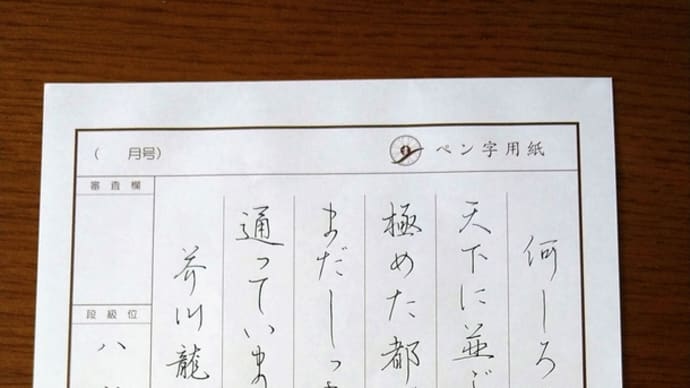 (　月号)
ペン字用紙
何しろ
天下に並
極めた都
まだしっ
通っていま
芥川龍
審査欄
段級位
八